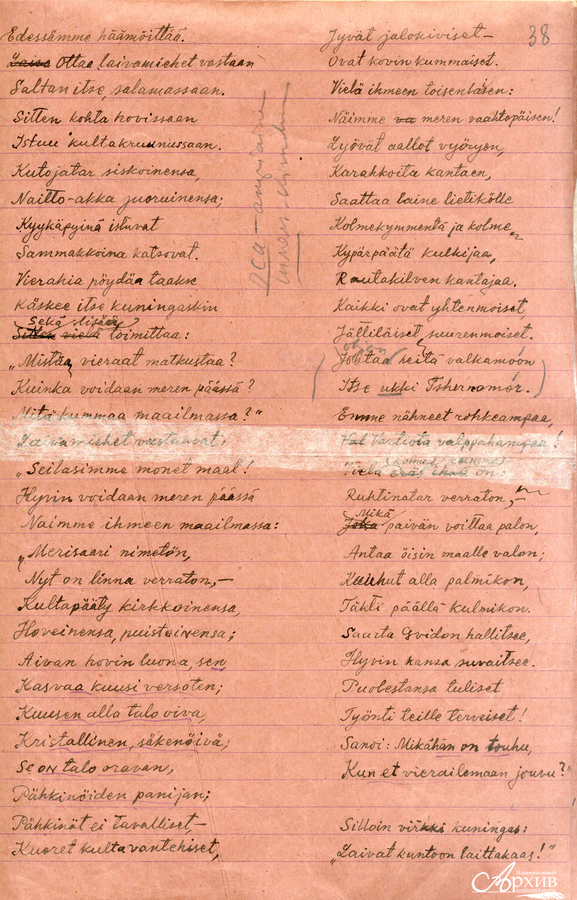 38
Edessämme häämöittää.
Ottaa laivamiehet vastaan
Saltan itse, salamassaan.
Sitten kohta hovissaan
Istuu kultakruunussaan.
Kutojatar siskoinensa,
Naitto-akka juoruinensa;
Kyykäpyinä istuvat
Sammakkoina katsovat.
Vierahia pöydän taakse
Käskee itse kuningaskin
Sekä lisäten
Sitten vielä toimittaa:
"Mistää vieraat matkustaa?
Kuinka voidaan meren päässä?
Mitä kummaa maailmassa?"
Laivamiehet vastaavat:
"Seilasimme monet maat!
Hyvin voidaan meren päässä
Näimme ihmeen maailmassa:
"Merisaari nimetön,
Nyt on linna verraton,—
Kultapääty kirkkoinensa,
Hoveinensa, puistoinensa;
Aivan hovin luona, sen,
Kasvaa kuusi versoten;
Kuusen alla talo oiva,
Kristallinen, säkenöivä;
Se on talo oravan,
Pähkinöiden panijan;
Pähkinät ei tavalliset,—
Kuoret kultavantehiset,
Jyvät jalokiviset—
Ovat kovin kummaiset.
Vielä ihmeen toisenlaisen:
Näimme va meren vaahtopäisen!
Lyövät aallot vyöryen,
Karahkoita kantaen,
Saattaa laine lietikölle
Kolmekymmentä ja kolme,
Kypärpäätä kulkijaa,
Rautakilven kantajaa.
Kaikki ovat yhtenmoiset,
Jälliläiset suurenmoiset.
Johtaa heitä valkamoon
Itse ukki Tshernomor.
Emme nähneet rohkeampaa,
Vartiota valppahampaa!
Vielä eräs ihme on:
Ruhtinatar verraton,—
Mikä
Jotka päivän voittaa palon,
Antaa öisin maalle valon;
Kuuhut alla palmikon,
Tähti päällä kulmikon.
Saarta Gvidon hallitsee,
Hyvin kansa suvaitsee.
Puolestansa tuliset
Työnti teille terveiset!
Sanoi: Mikähän on touhu,
Kun et vierailemaan jouvu?"
Silloin virkki kuningas:
"Laivat kuntoon laittakaas!"
Архив